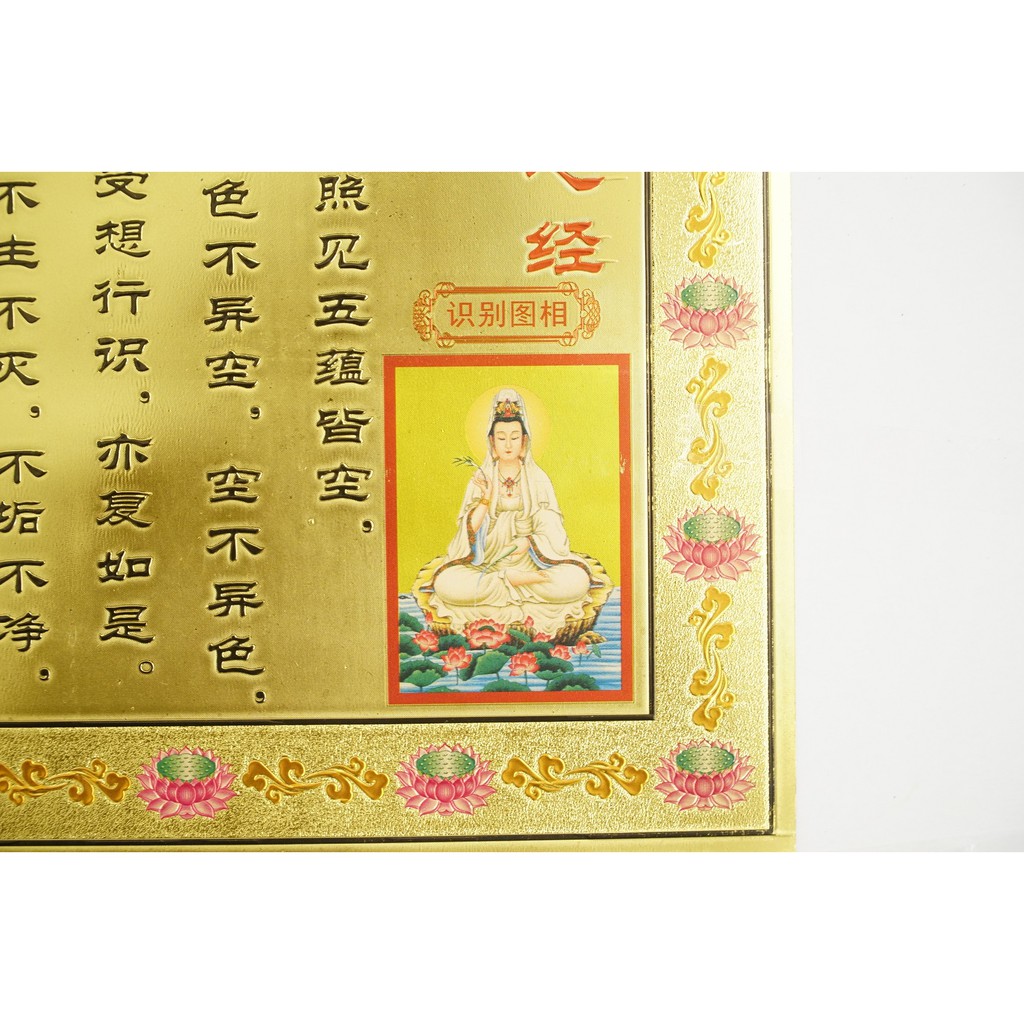 经
识别图相
照见五蕴皆空，
色不异空，空不异色，
受想行识，亦复如是。
不生不灭，不垢不净，